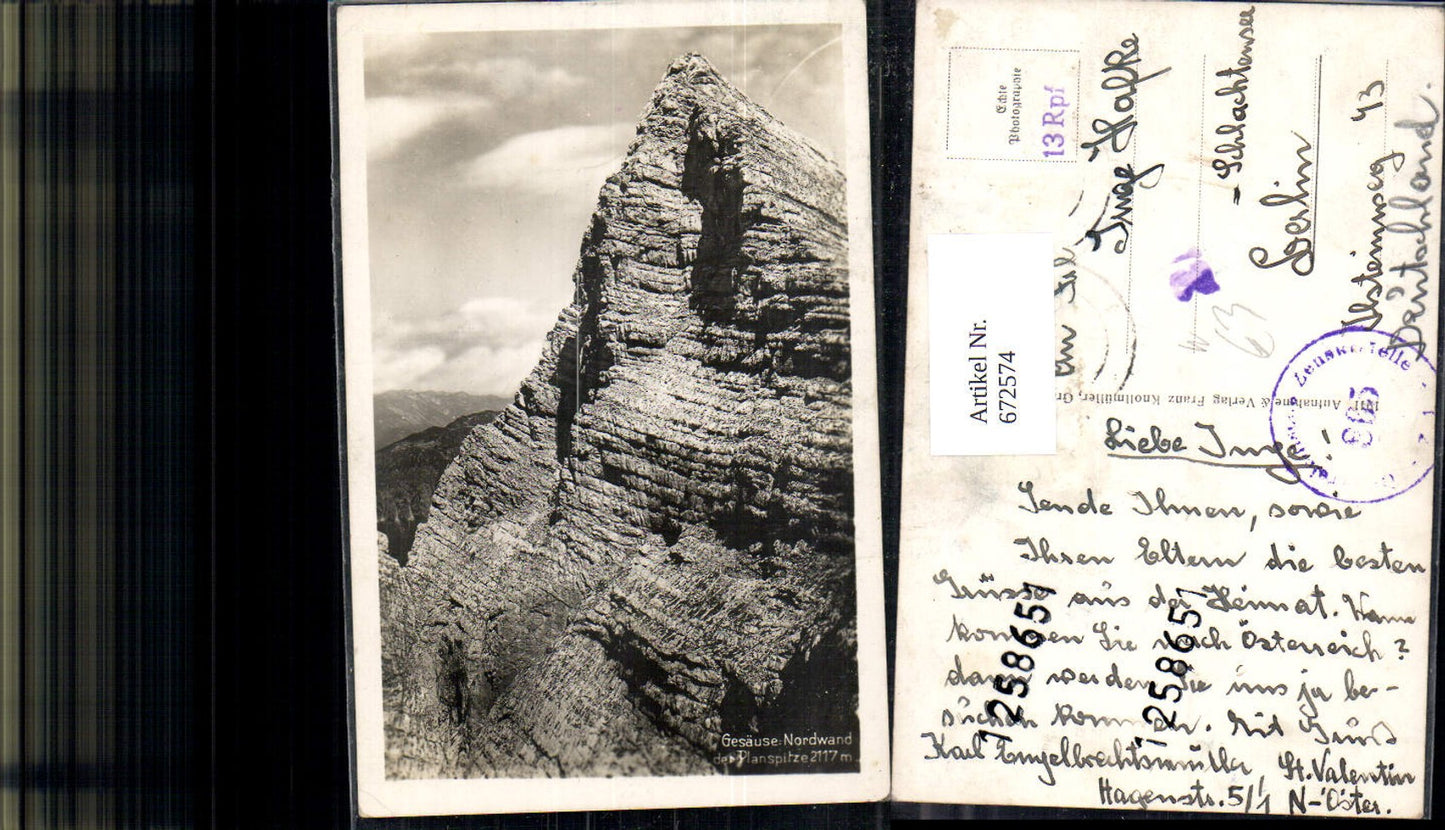 Gesäuse: Nordwand
der Planspitze 2117 m.
Echte
Photographie
13 Rpf
Inge Hafke
- Schlachtensee
Berlin
Ilsteinweg 43
Deutschland.
63
Artikel Nr.
672574
Aufnahme & Verlag Franz Knollmüller, Gr
Zensurstelle
805
Liebe Inge!
Sende Ihnen, sowie
Ihren Eltern die besten
Grüsse aus der Heimat. Wann
kommen Sie nach Österreich?
dann werden Sie uns ja be-
suchen kommen. Mit Gruß
Karl Engelbrechtsmüller, St. Valentin
Hagenstr. 5/1 N-Öster.
1258651
1258651